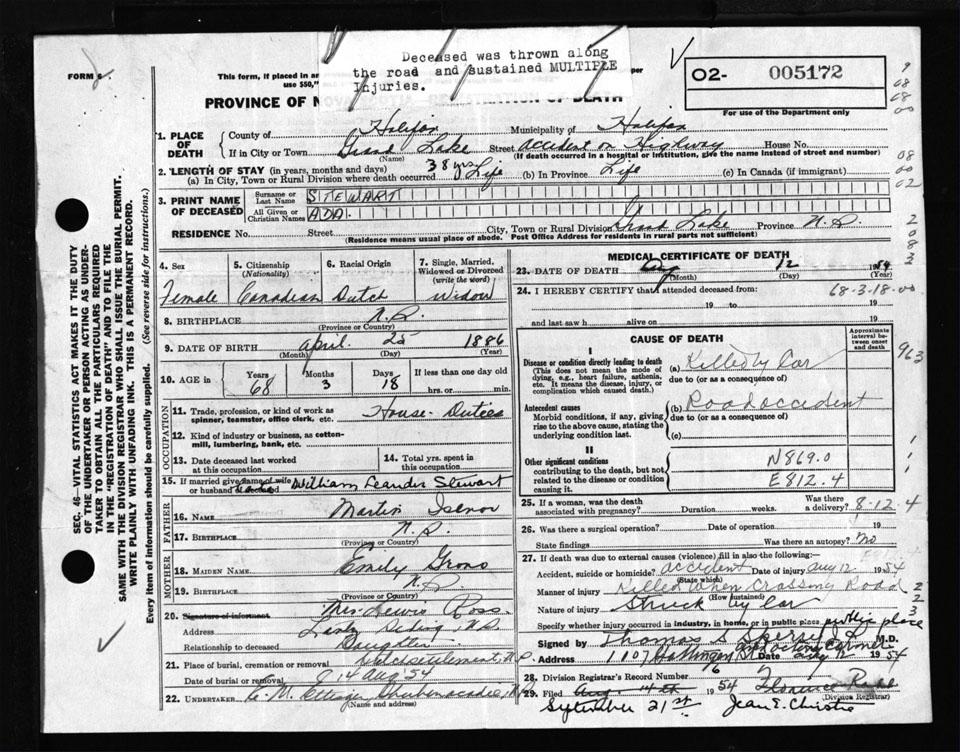 Deceased was thrown along
the road and sustained MULTIPLE
Injuries.
FORM 6.
This form, if placed in an
use $50,"
per
O2- 005172
PROVINCE OF N REGISTRATION OF DEATH
For use of the Department only
1. PLACE OF DEATH
County of Halifax Municipality of Halifax
If in City or Town Grand Lake Street accident on Highway House No.
(Name) (If death occurred in a hospital or institution, give the name instead of street and number)
2. LENGTH OF STAY (in years, months and days) 38 yrs Life
(a) In City, Town or Rural Division where death occurred (b) In Province Life (c) In Canada (if immigrant)
3. PRINT NAME OF DECEASED
Surname or Last Name STEWART
All Given or Christian Names ADA.
RESIDENCE No. Street City, Town or Rural Division Grand Lake Province N.S.
(Residence means usual place of abode. Post Office Address for residents in rural parts not sufficient)
4. Sex Female
5. Citizenship (Nationality) Canadian
6. Racial Origin Dutch
7. Single, Married, Widowed or Divorced (write the word) Widow
8. BIRTHPLACE N.S.
(Province or Country)
9. DATE OF BIRTH April 25 1886
(Month) (Day) (Year)
10. AGE in Years 68 Months 3 Days 18 If less than one day old
hrs. or min.
OCCUPATION
11. Trade, profession, or kind of work as
spinner, teamster, office clerk, etc. House-Duties
12. Kind of industry or business, as cotton-
mill, lumbering, bank, etc.
13. Date deceased last worked
at this occupation
14. Total yrs. spent in
this occupation
15. If married give name of wife
or husband of deceased William Leander Stewart
FATHER
16. NAME Martin Isenor
17. BIRTHPLACE N.S.
(Province or Country)
MOTHER
18. MAIDEN NAME Emily Grono
19. BIRTHPLACE N.S.
(Province or Country)
20. Signature of informant Mrs. Lewis Ross
Address Lantz Siding, N.S.
Relationship to deceased Daughter
21. Place of burial, cremation or removal Dutch settlement, N.S.
Date of burial or removal 14 Aug '54
22. UNDERTAKER C. M. Ettinger Shubenacadie, N.S.
(Name and address)
MEDICAL CERTIFICATE OF DEATH
23. DATE OF DEATH Aug 12 1954
(Month) (Day)
24. I HEREBY CERTIFY that I attended deceased from: 68-3-18-00
19 to 19
and last saw h alive on 19
CAUSE OF DEATH
Approximate interval between onset and death
I
Disease or condition directly leading to death
(This does not mean the mode of
dying, e.g., heart failure, asthenia,
etc. It means the disease, injury, or
complication which caused death.)
(a) Killed by Car
due to (or as a consequence of)
Antecedent causes
Morbid conditions, if any, giving
rise to the above cause, stating the
underlying condition last.
(b) Road accident
due to (or as a consequence of)
(c)
II
Other significant conditions
contributing to the death, but not
related to the disease or condition
causing it.
N869.0
E812.4
25. If a woman, was the death
associated with pregnancy? Duration weeks. Was there
a delivery? 8-12.4
26. Was there a surgical operation? Date of operation 19
State findings Was there an autopsy? No
27. If death was due to external causes (violence) fill in also the following:
Accident, suicide or homicide? accident Date of injury Aug 12 1954
(State which)
Manner of injury Killed when Crossing Road
(How sustained)
Nature of injury Struck by Car
Specify whether injury occurred in industry, in home, or in public place public place
Signed by Thomas M.D.
Address 1107 Date Aug 12 1954
28. Division Registrar's Record Number 6
29. Filed Aug. 14th 1954 Florence
(Division Registrar)
September 21st Jean E. Christie
SEC. 46—VITAL STATISTICS ACT MAKES IT THE DUTY
OF THE UNDERTAKER OR PERSON ACTING AS UNDER-
TAKER TO OBTAIN ALL THE PARTICULARS REQUIRED
IN THE "REGISTRATION OF DEATH" AND TO FILE THE
SAME WITH THE DIVISION REGISTRAR WHO SHALL ISSUE THE BURIAL PERMIT.
WRITE PLAINLY WITH UNFADING INK. THIS IS A PERMANENT RECORD.
Every item of information should be carefully supplied. (See reverse side for instructions.)
9
08
08
00
08
00
02
2
0
8
2
963
1
1
1
2
2
3